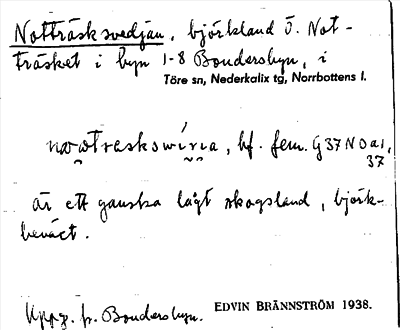 Notträsksvedjan, björkland Ö. Not-
träsket i byn 1-8 Bondersbyn, i
Töre sn, Nederkalix tg, Norrbottens l.
bf. fem. G 37 N O a 1,
37
är ett ganska lågt skogsland, björk-
beväxt.
Uppg. fr. Bondersbyn. EDVIN BRÄNNSTRÖM 1938.